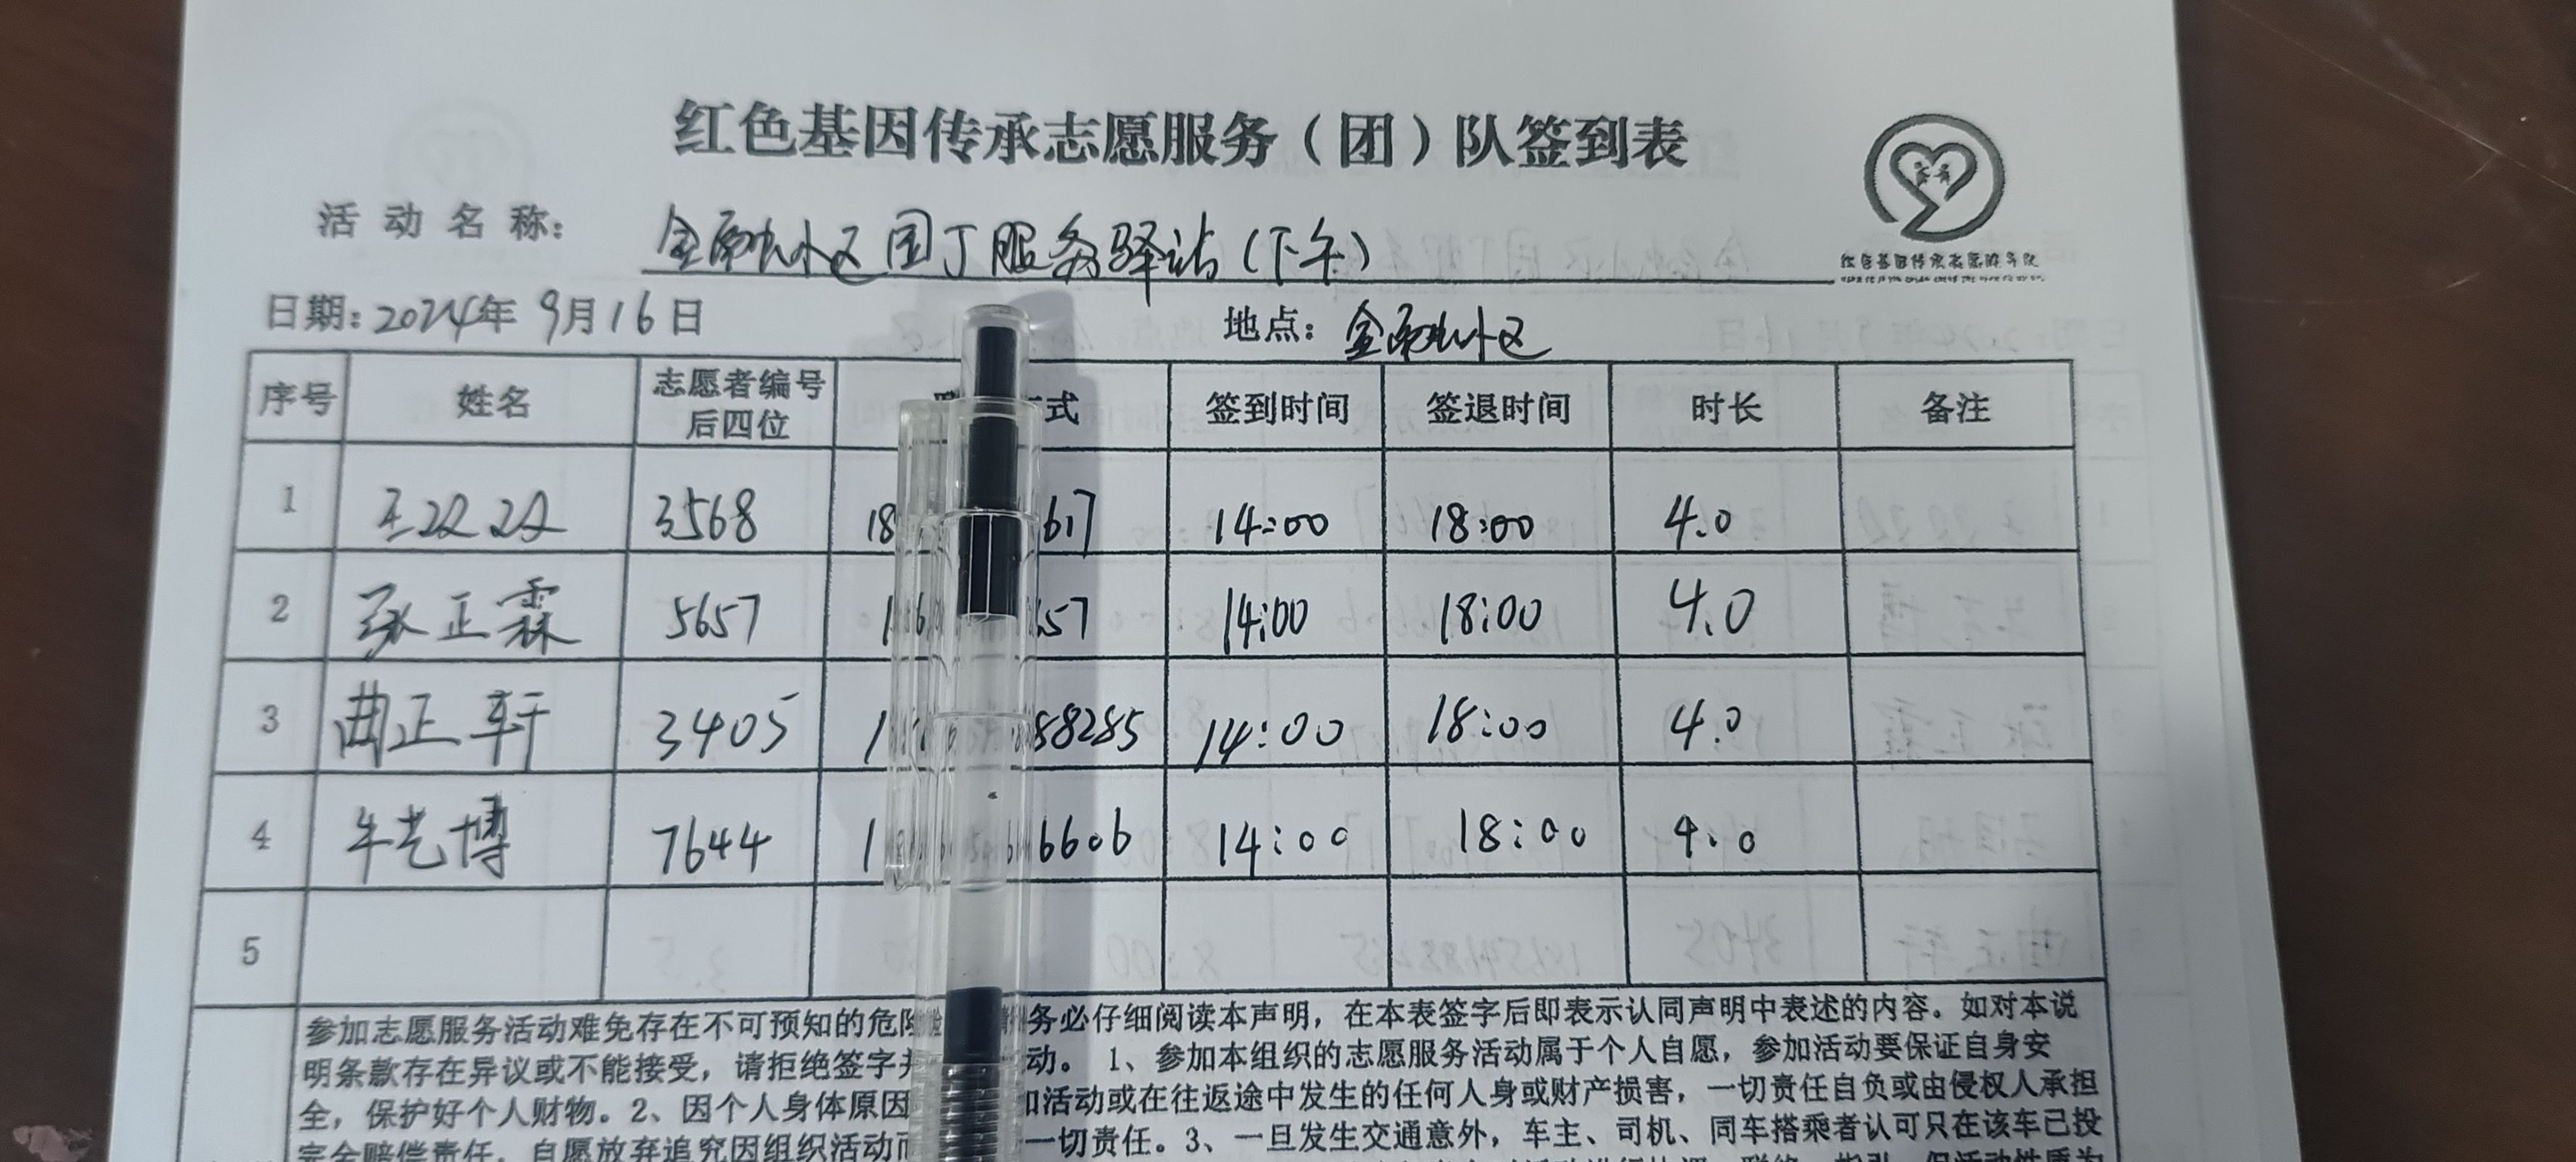 红色基因传承志愿服务（团）队签到表
红色基因传承志愿服务队
活动名称： 小区园丁服务驿站（下午）
日期：2024年9月16日 地点： 小区
序号 姓名 志愿者编号后四位 式 签到时间 签退时间 时长 备注
1 王 3568 18 617 14:00 18:00 4.0
2 张正霖 5657 1 657 14:00 18:00 4.0
3 曲正轩 3405 1 88285 14:00 18:00 4.0
4 牛艺博 7644 1 6606 14:00 18:00 4.0
5
参加志愿服务活动难免存在不可预知的危险 务必仔细阅读本声明，在本表签字后即表示认同声明中表述的内容。如对本说
明条款存在异议或不能接受，请拒绝签字并 动。 1、参加本组织的志愿服务活动属于个人自愿，参加活动要保证自身安
全，保护好个人财物。2、因个人身体原因 加活动或在往返途中发生的任何人身或财产损害，一切责任自负或由侵权人承担
完全赔偿责任，自愿放弃追究因组织活动而 一切责任。3、一旦发生交通意外，车主、司机、同车搭乘者认可只在该车已投